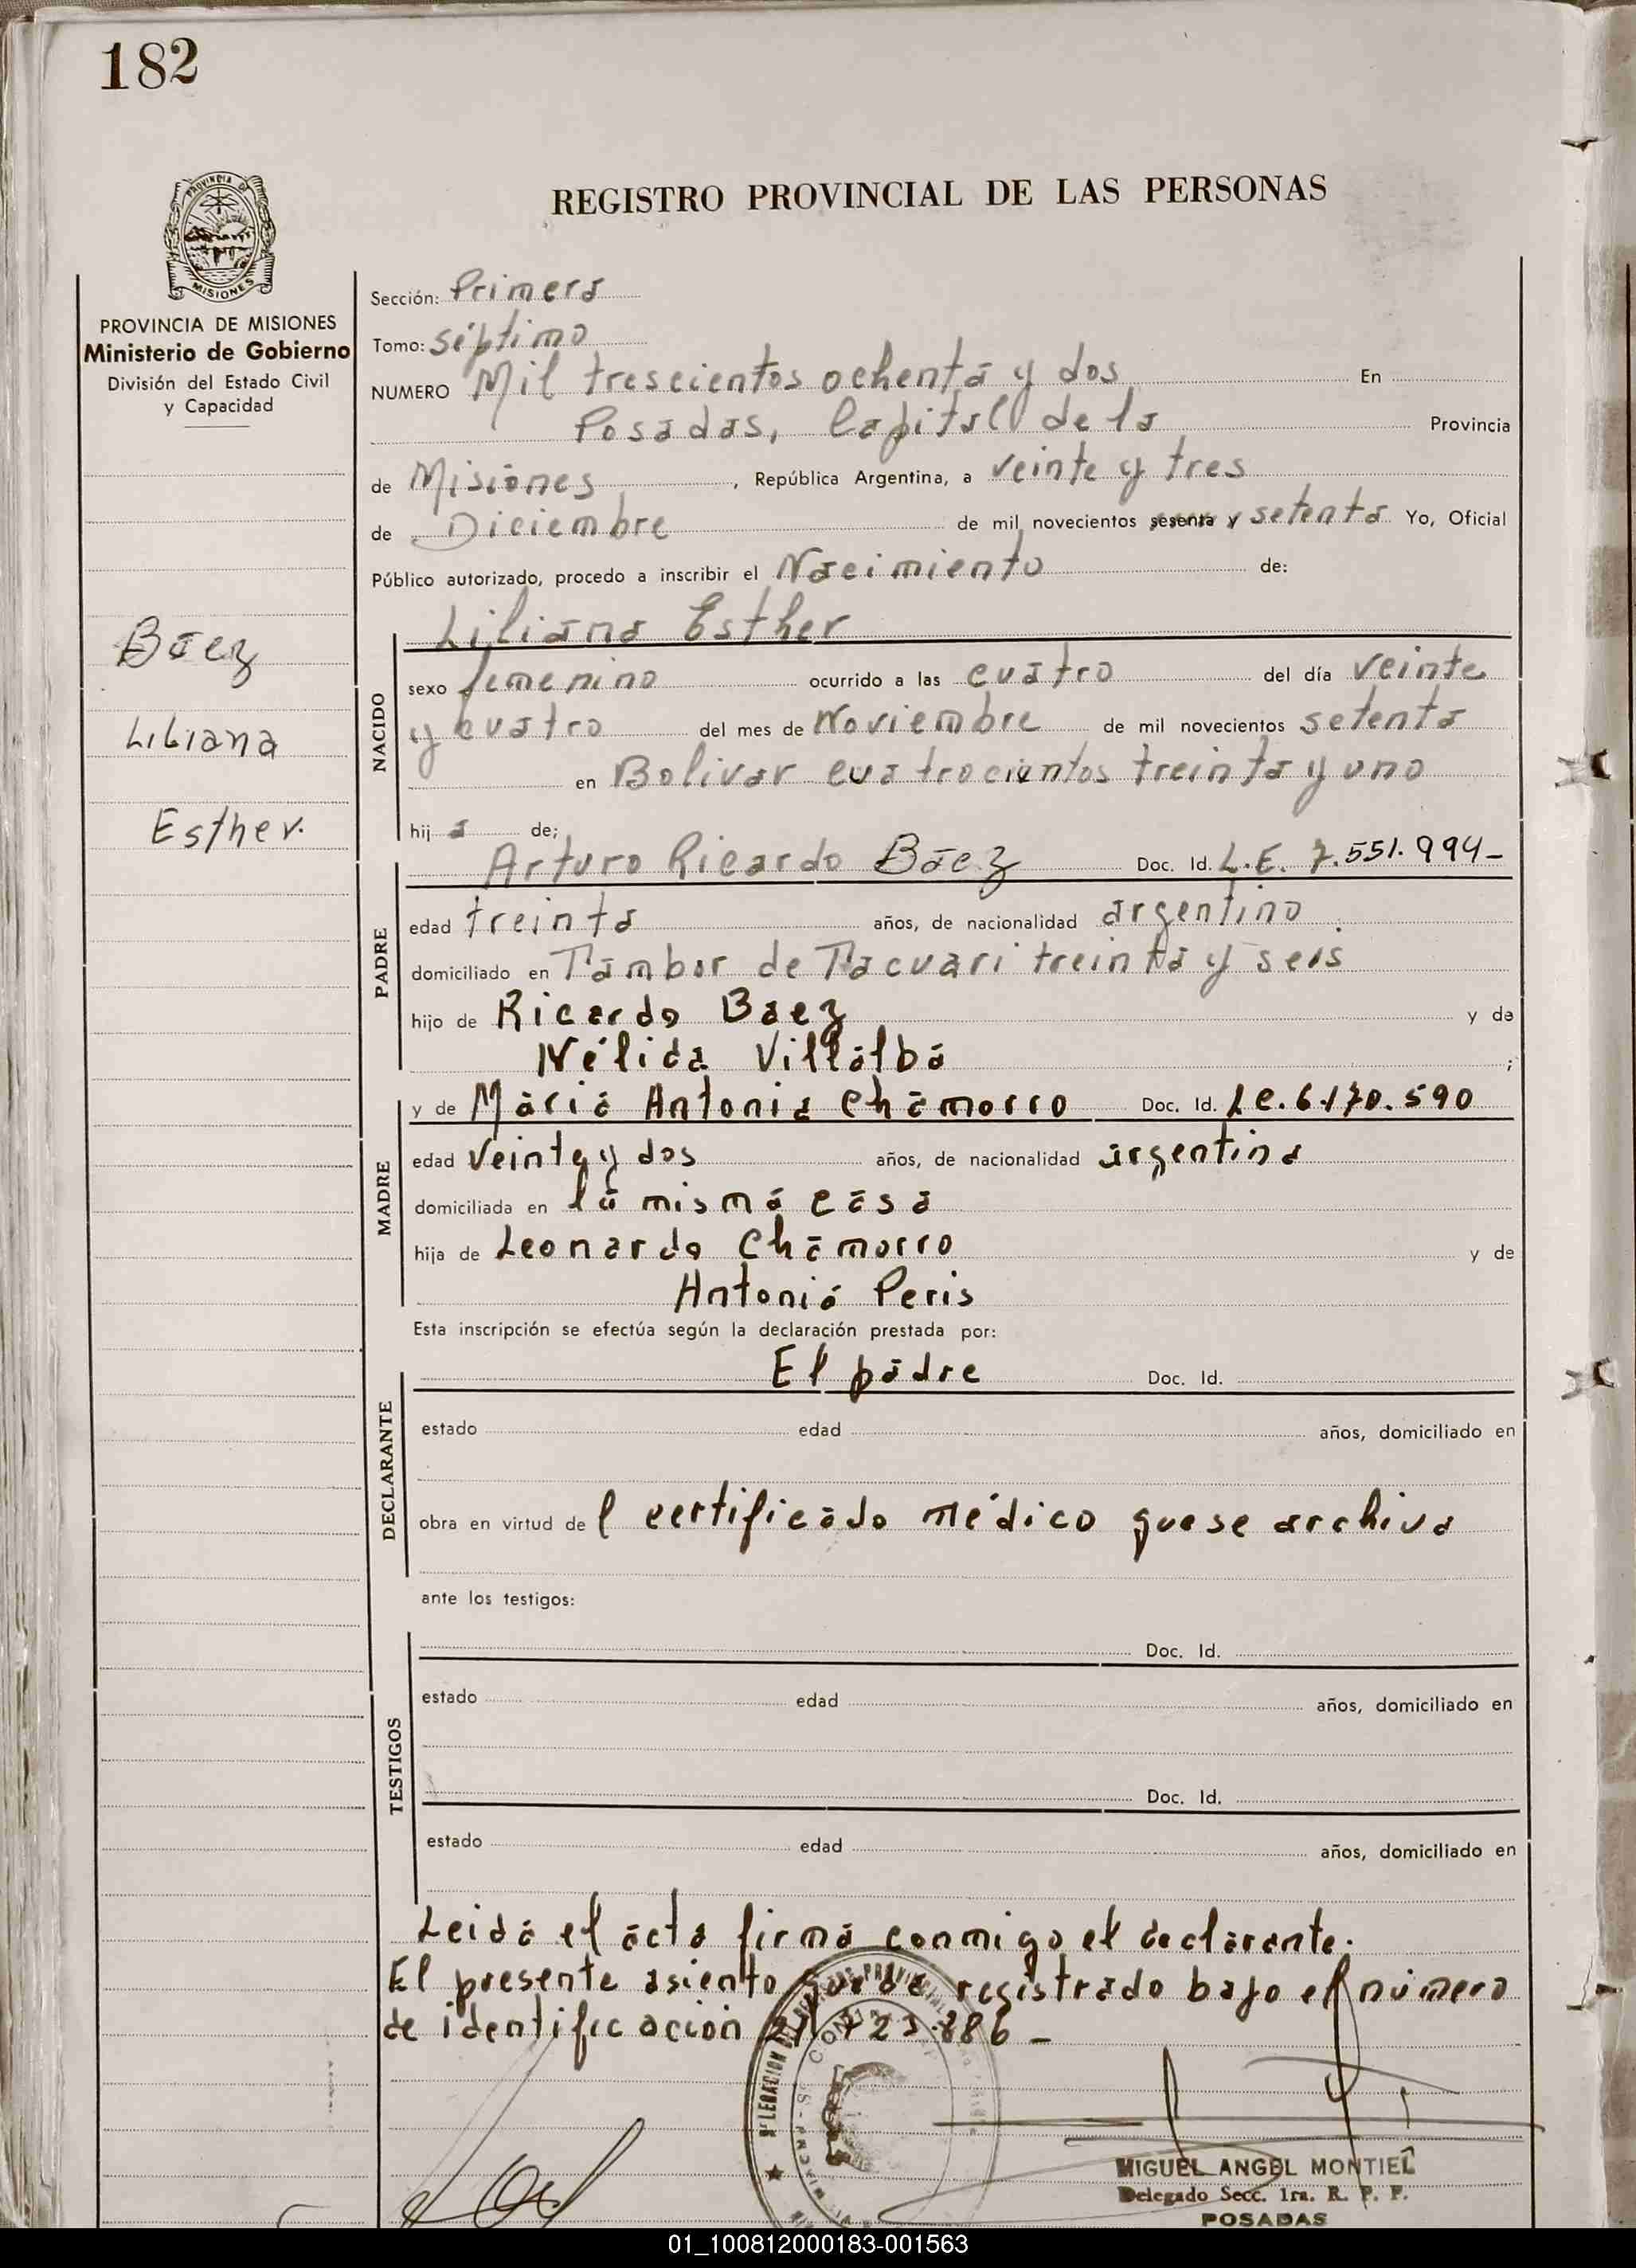 182
REGISTRO PROVINCIAL DE LAS PERSONAS
PROVINCIA DE
MISIONES
PROVINCIA DE MISIONES
Ministerio de Gobierno
División del Estado Civil
y Capacidad
Baez
Liliana
Esther.
Sección: Primera
Tomo: séptimo
NUMERO Mil trescientos ochenta y dos En
Posadas, Capital de la Provincia
de Misiones, República Argentina, a veinte y tres
de Diciembre de mil novecientos sesenta y setenta Yo, Oficial
Público autorizado, procedo a inscribir el Nacimiento de:
Liliana Esther
NACIDO
sexo femenino ocurrido a las cuatro del día veinte
y cuatro del mes de Noviembre de mil novecientos setenta
en Bolivar cuatrocientos treinta y uno
hij a de;
Arturo Ricardo Báez Doc. Id. L.E. 7.551.994-
PADRE
edad treinta años, de nacionalidad argentino
domiciliado en Tambor de Tacuari treinta y seis
hijo de Ricardo Baez y de
Nélida Villalba ;
MADRE
y de Maria Antonia Chamorro Doc. Id. LC. 6.170.590
edad veinte y dos años, de nacionalidad argentina
domiciliada en la misma casa
hija de Leonardo Chamorro y de
Antonia Peris
Esta inscripción se efectúa según la declaración prestada por:
El padre Doc. Id.
DECLARANTE
estado edad años, domiciliado en
obra en virtud de l certificado médico que se archiva
ante los testigos:
TESTIGOS
Doc. Id.
estado edad años, domiciliado en
Doc. Id.
estado edad años, domiciliado en
Leida el acta firma conmigo el declarante.
El presente asiento queda registrado bajo el número
de identificación 886 -
MIGUEL ANGEL MONTIEL
Delegado Secc. 1ra. R. P. P.
POSADAS
01_100812000183-001563